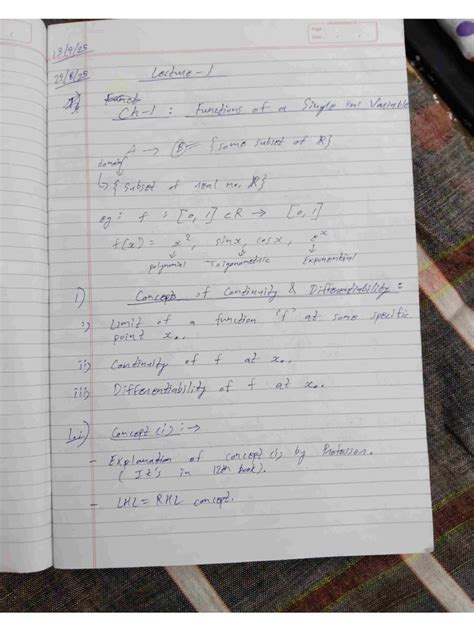 13/9/25
29/8/25
Lecture-1
Ch-1 : Functions of a Single Variable
A → B = {some subset of R}
domain
↳ {subset of real no. R}
eg: f : [0, 1] ⊂ R → [0, 1]
f(x) = x², sin x, cos x, e^x
polynomial Trigonometric Exponential
1) Concept of Continuity & Differentiability :
i) Limit of a function "f" at some specific
point x₀.
ii) Continuity of f at x₀.
iii) Differentiability of f at x₀.
1.i) Concept (i) :→
- Explanation of concept (i) by Professor.
(It's in 12th book).
- LHL = RHL concept.